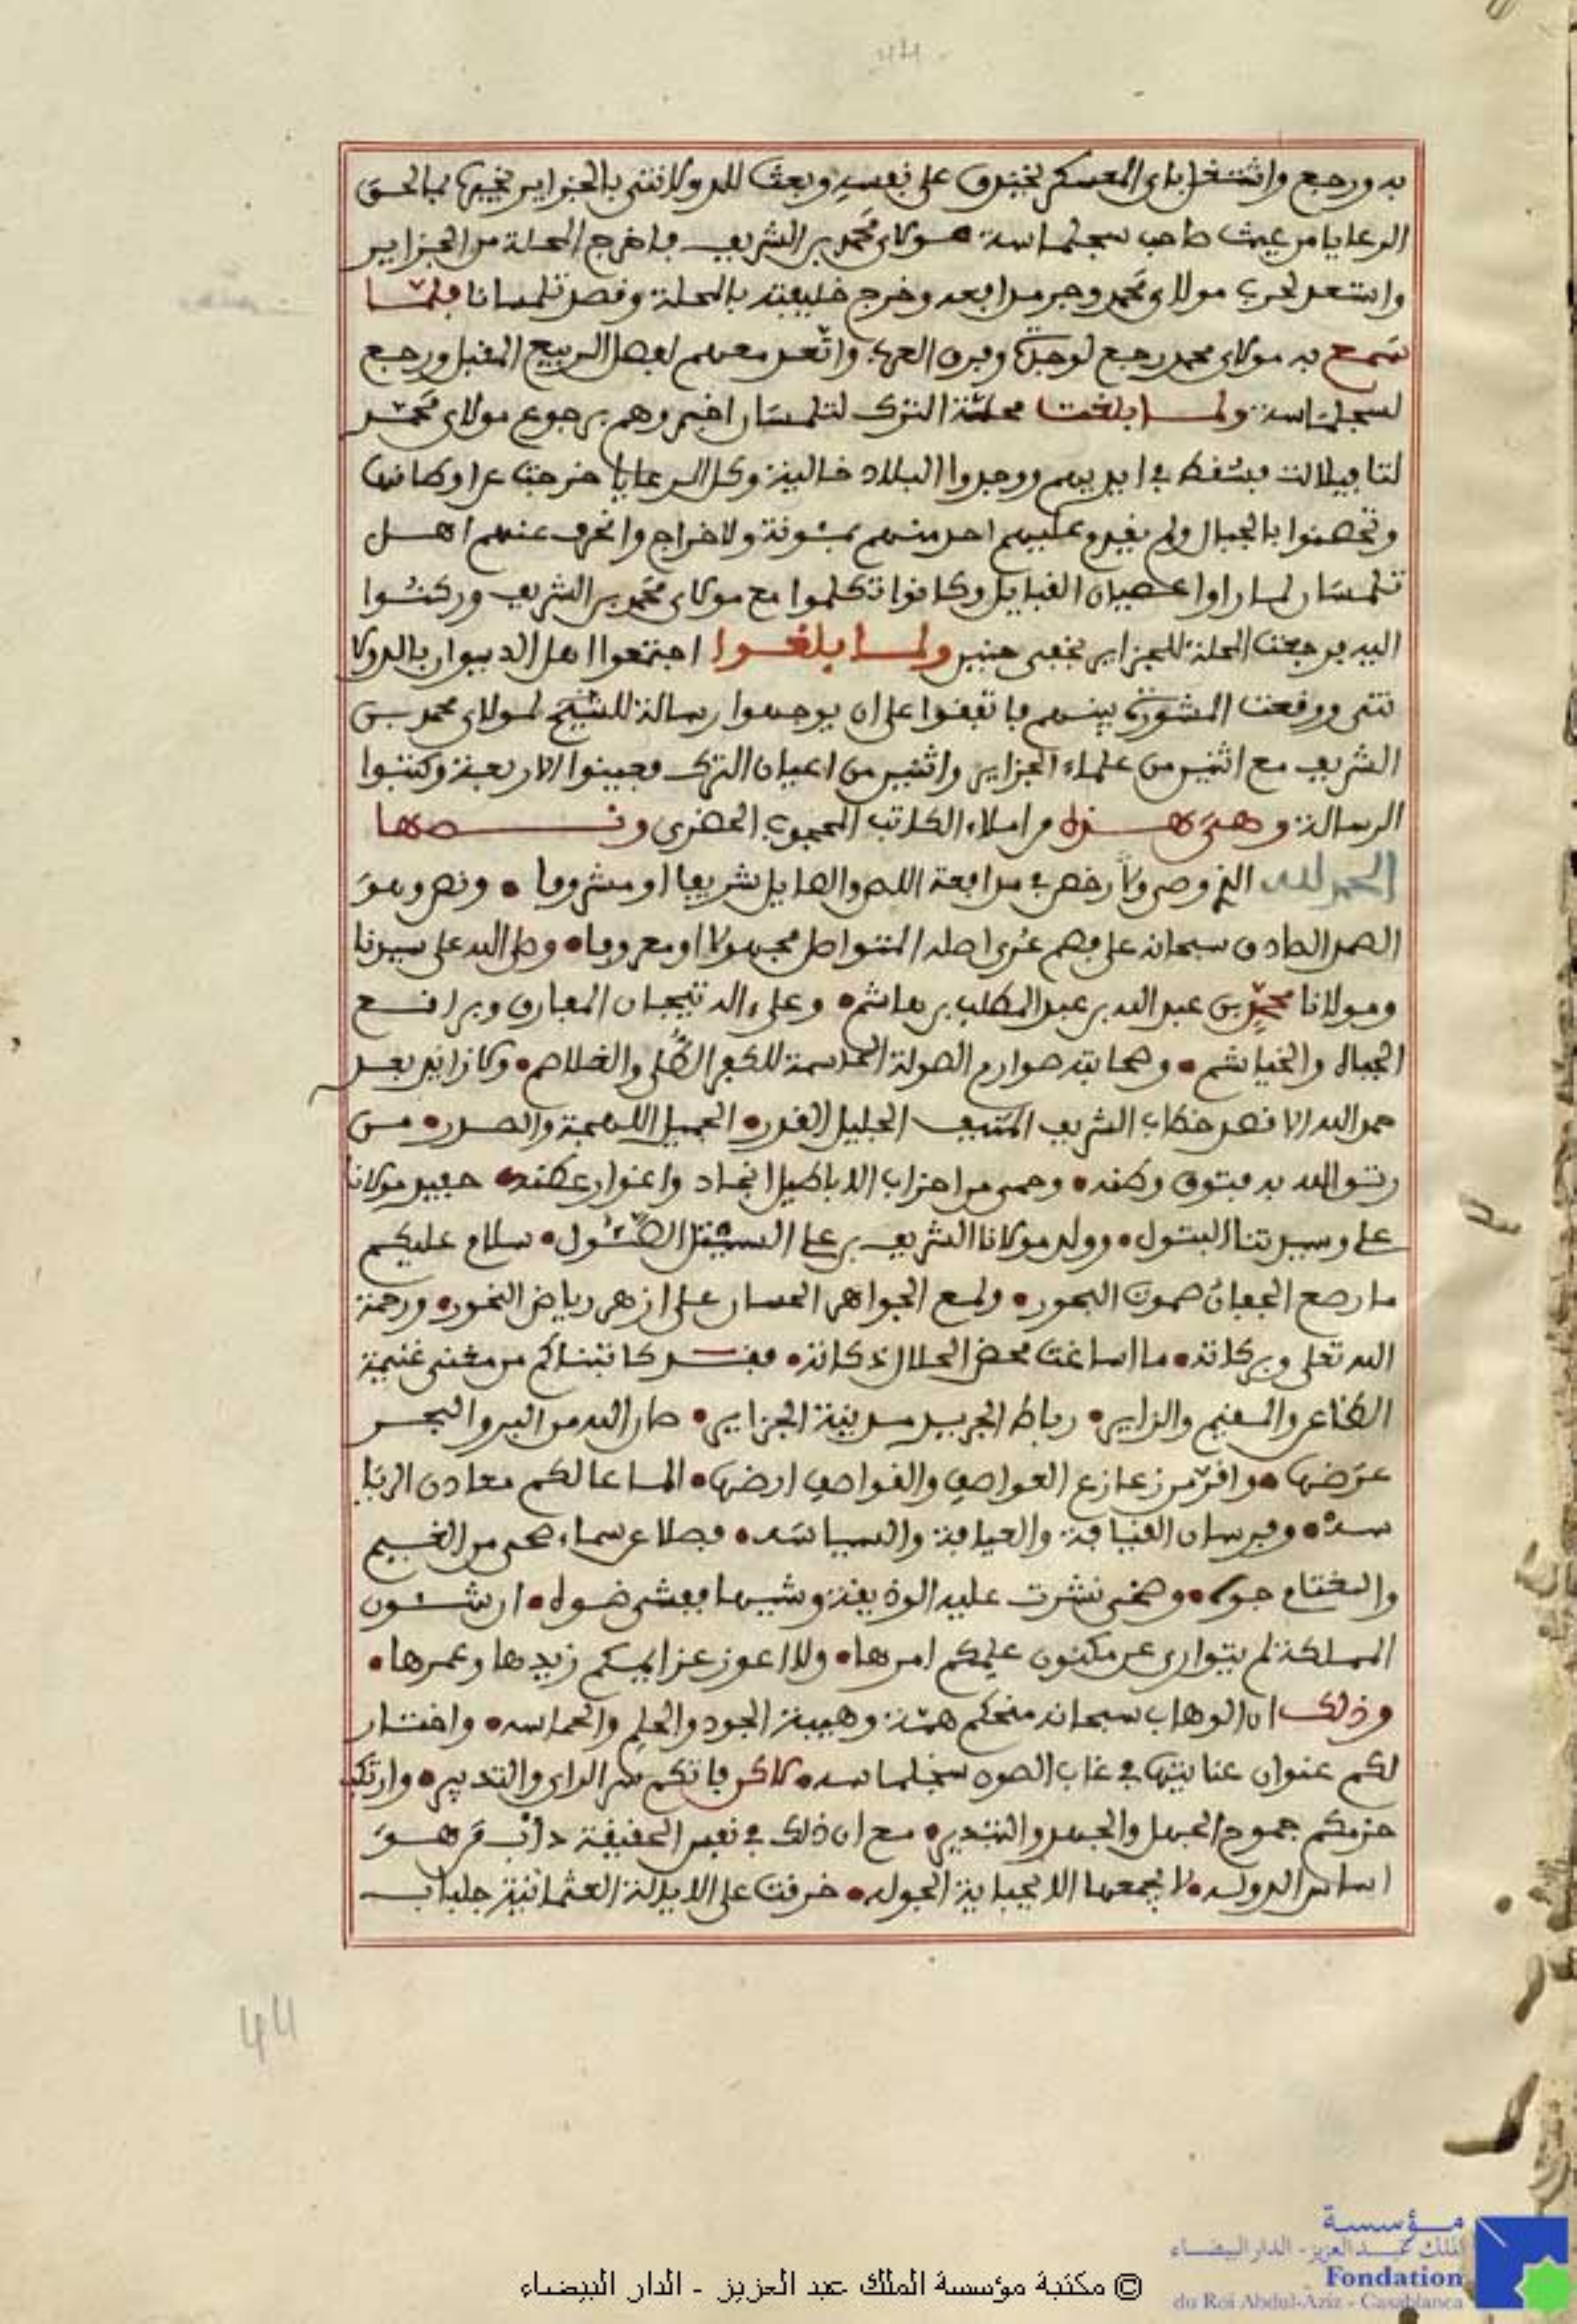 44
به ورجع واشتغل باي المعسكر بخندق على نفسه وبعث للدولاتتي بالجزاير يخبره بما لحق
الرعايا من عيث صاحب سجلماسة مولاي محمد بن الشريف فاخرج المحلة من الجزاير
واستعد لحرب مولاي محمد وجر مدافعه وخرج خليفته بالمحلة وقصد تلمسان فلما
سمع به مولاي محمد رجع لوجدة وفرق العرب واتعد معهم لفصل الربيع المقبل ورجع
لسجلماسة ولما بلغت محلة الترك لتلمسان اخبروهم برجوع مولاي محمد
لتافيلالت فسقط في ايديهم ووجدوا البلاد خالية وكل الرعايا خرجت عن اوطانها
وتحصنوا بالجبال ولم يفد عليهم احد منهم بمئونة ولا خراج وانحرف عنهم اهل
تلمسان لما راوا عصيان القبايل وكانوا تكلموا مع مولاي محمد بن الشريف وركنوا
اليه فرجعت المحلة للجزاير بخفي حنين ولما بلغوا اجتمعوا اهل الديوان بالدولا
تتي ووقعت المشورة بينهم فاتفقوا على ان يوجهوا رسالة للشيخ لمولاي محمد بن
الشريف مع اثنين من علماء الجزاير واثنين من اعيان الترك فعينوا الاربعة وكتبوا
الرسالة وهي هذه من املاء الكاتب المحجوب الحضري ونصها
الحمد لله الذي وصى ولا رخص في مدافعة اللص والصايل شريفا او مشروفا • ونص وهو
الصمد الصادق سبحانه على فصم عرى اصله المتواصل مجهولا او معروفا • وصلى الله على سيدنا
ومولانا محمد بن عبد الله بن عبد المطلب بن هاشم • وعلى ءاله تيجان المعارف وبراقع
الجباه والخياشم • وصحابته صوارم الصولة الحاسمة للكفر الطلى والغلاصم • ولا زايد بعد
حمد الله الا قصد خطاب الشريف المنيف الجليل القدر • الجميل اللهجة والصدر • من
رتق الله به فتوق وطنه • وحمى من احزاب الاباطيل انجاد واغوار عطنه • حفيد مولانا
علي وسيدتنا البتول • وولد مولانا الشريف بن علي الصئول • سلام عليكم
ما رصع الجفان صموت البحور • ولمع الجواهر الحسان على ازهر رياض النحور • ورحمة
الله تعلى وبركاته • ما اساغت محض الحلال ذكاته • فقد كاتبناكم من مغنى غنيمة
الظاعن والمقيم والزاير • رباط الجريد مدينة الجزاير • صان الله من البر والبحر
عرضها • وامن من زعازع العواصف والقواصف ارضها • الماعا لكم معادن الريا
سة • وفرسان القيافة والعيافة والسياسة • فضلا عن سماء صحى من الغيم
والقتام جوه • وضحى نشرت عليه الوديقة وشيها ففشى ضوله • ان شئون
المملكة لم يتوارى عن مكنون علمكم امرها • ولا اعوز عزايمكم زيدها وعمرها •
وذلك ان الوهاب سبحانه منحكم همة وهيبة الجود والحلم والحماسة • واختار
لكم عنوان عنايتها في غاب الصون سجلماسة • لاكن فاتكم سر الراي والتدبير • وارتكب
حزمكم جموح الجهل والجهد والتتبير • مع ان ذلك في نفس الحقيقة داب من هو
اساس الدولة • لا يجمعها الا لجباية الجولة • خرقت على الايالة العثمانية جلباب
44
مؤسسة
الملك عبد العزيز - الدار البيضاء
Fondation
du Roi Abdul-Aziz - Casablanca
© مكتبة مؤسسة الملك عبد العزيز - الدار البيضاء